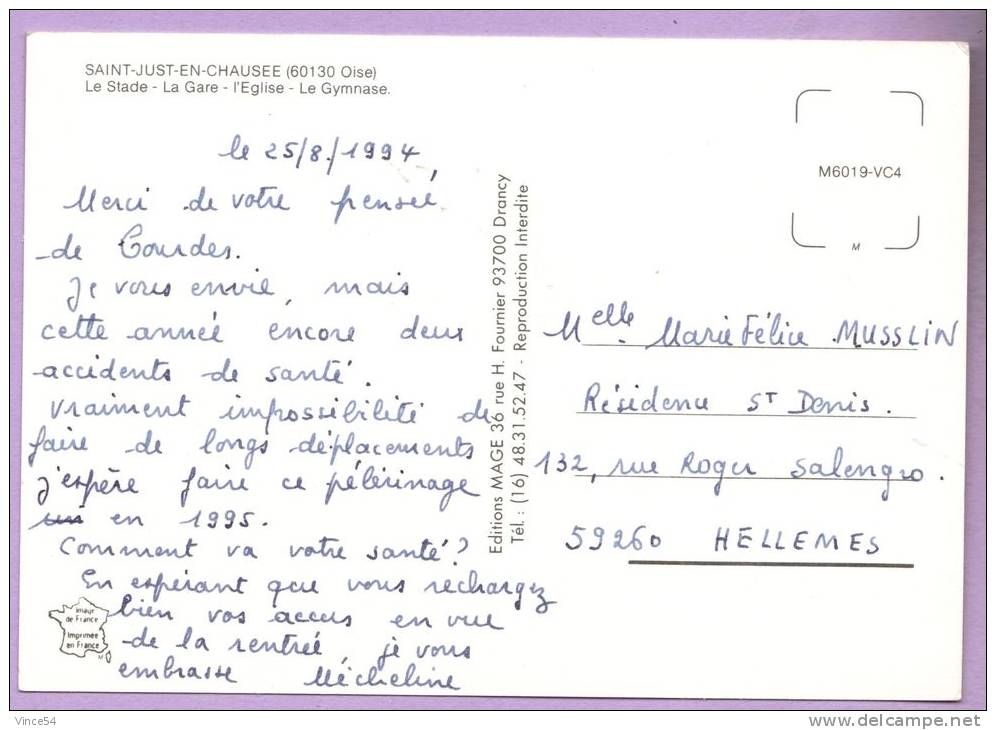 SAINT-JUST-EN-CHAUSEE (60130 Oise)
Le Stade - La Gare - l'Eglise - Le Gymnase.
le 25/8/1994,
Merci de votre pensée
de Lourdes.
Je vous envie, mais
cette année encore deux
accidents de santé.
Vraiment impossibilité de
faire de longs déplacements
j'espère faire ce pélérinage
en 1995.
Comment va votre santé?
En espérant que vous rechargez
bien vos accus en vue
de la rentrée, je vous
embrasse Mécheline
Image
de France
Imprimée
en France
Editions MAGE 36 rue H. Fournier 93700 Drancy
Tél. : (16) 48.31.52.47 - Reproduction Interdite
M6019-VC4
M
Melle. Marie Félice MUSSLIN
Résidence ST Denis.
132, rue Roger Salengro.
59260 HELLEMES
Vince54
http://www.delcampe.net